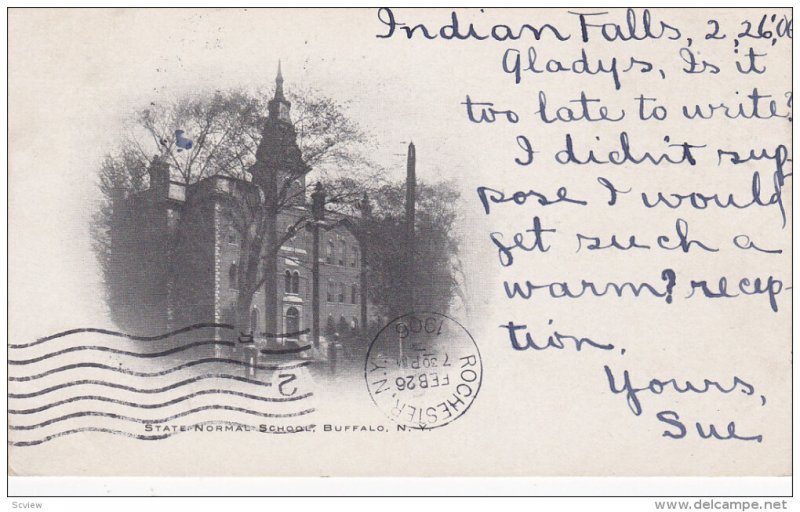 Indian Falls, 2,26,'06
Gladys, Is it
too late to write?
I didn't sup-
pose I would
get such a
warm? recep-
tion.
Yours,
Sue.
ROCHESTER, N.Y.
FEB 26
7 30 PM
1906
2
STATE NORMAL SCHOOL, BUFFALO, N. Y.
Scview
www.hipposcard.com